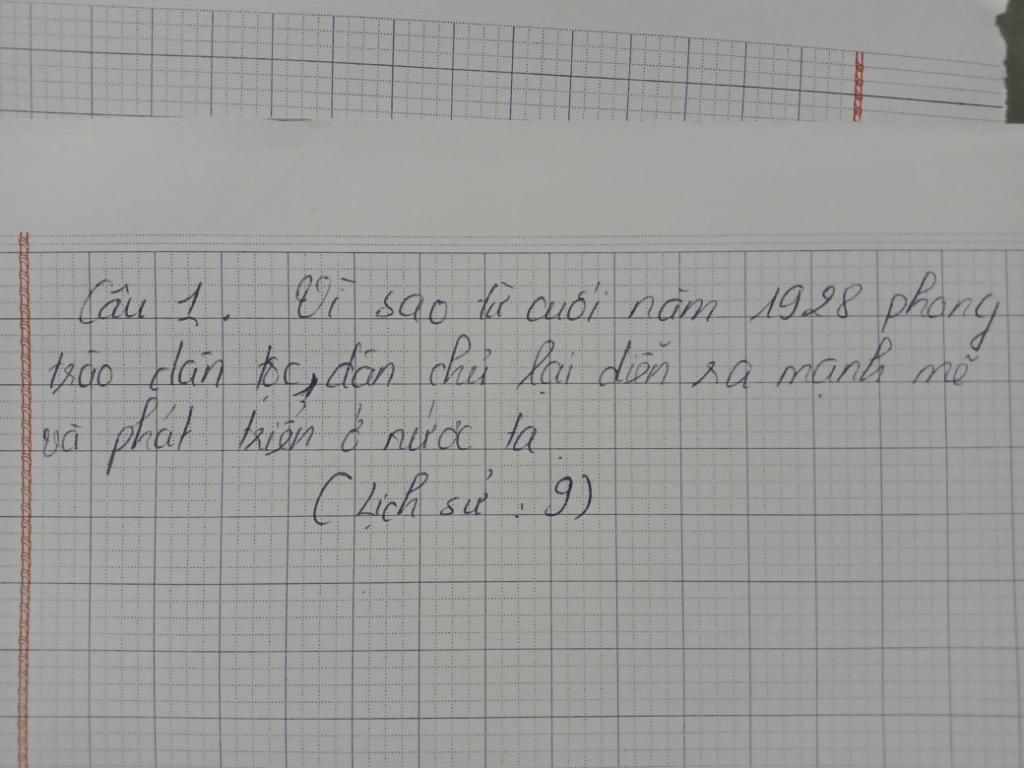 Câu 1. Vì sao từ cuối năm 1928 phong
trào dân tộc, dân chủ lại diễn ra mạnh mẽ
và phát triển ở nước ta
(Lịch sử : 9)